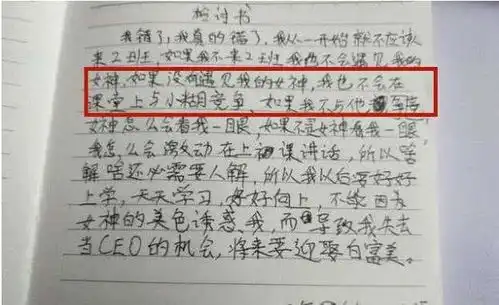 检讨书
我错了,我真的错了,我从一开始就不应该
来2班,如果我不来2班我也不会遇见我的
女神,如果没有遇见我的女神,我也不会在
课堂上与小胡竞争、如果我不与他
女神怎么会看我一眼,如果不是女神看我一眼,
我怎么会激动在上课讲话,所以
解啥还必需要人解,所以我以后要好好
上学,天天学习,好好向上,不能因为
女神的美色诱惑我,而导致我失去
当CEO的机会,将来要迎娶白富美。